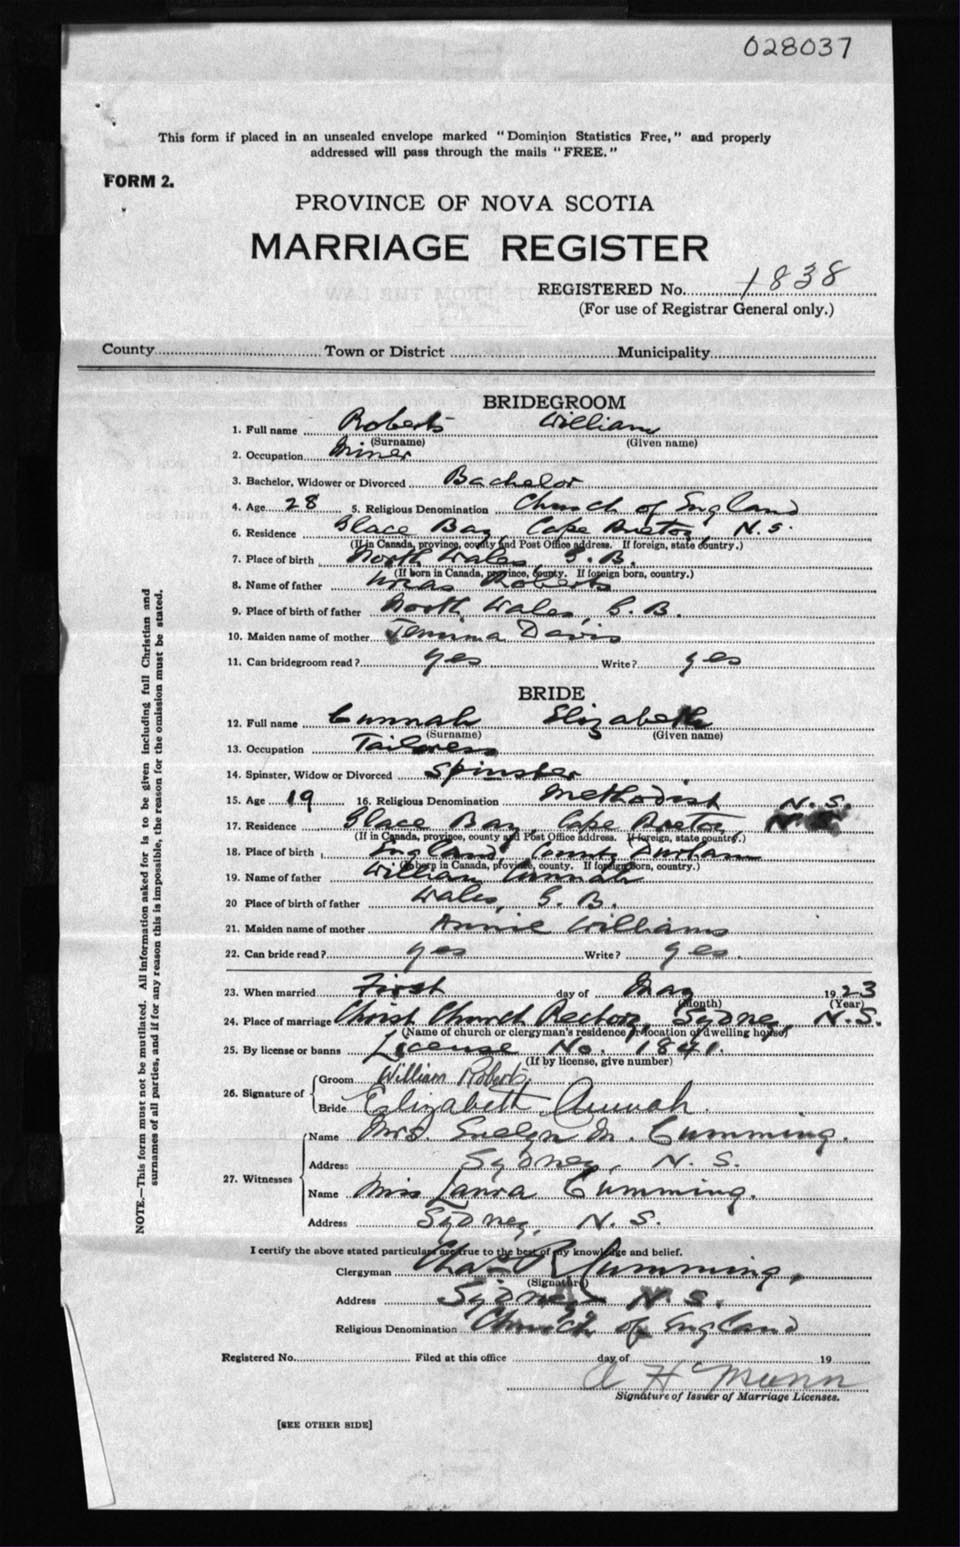 028037
This form if placed in an unsealed envelope marked "Dominion Statistics Free," and properly
addressed will pass through the mails "FREE."
FORM 2.
PROVINCE OF NOVA SCOTIA
MARRIAGE REGISTER
REGISTERED No. 1838
(For use of Registrar General only.)
County Town or District Municipality
BRIDEGROOM
1. Full name Roberts William
(Surname) (Given name)
2. Occupation Miner
3. Bachelor, Widower or Divorced Bachelor
4. Age 28 5. Religious Denomination Church of England
6. Residence Glace Bay Cape Breton, N.S.
(If in Canada, province, county and Post Office address. If foreign, state country.)
7. Place of birth North Wales G.B.
(If born in Canada, province, county. If foreign born, country.)
8. Name of father Roberts
9. Place of birth of father North Wales, G.B.
10. Maiden name of mother Jemima Davis
11. Can bridegroom read? yes Write? yes
BRIDE
12. Full name Cunnah Elizabeth
(Surname) (Given name)
13. Occupation Tailoress
14. Spinster, Widow or Divorced Spinster
15. Age 19 16. Religious Denomination Methodist N.S.
17. Residence Glace Bay, Cape Breton,
(If in Canada, province, county and Post Office address. If foreign, state country.)
18. Place of birth England, County Durham
(If born in Canada, province, county. If foreign born, country.)
19. Name of father William Cunnah
20 Place of birth of father Wales, G.B.
21. Maiden name of mother Annie Williams
22. Can bride read? yes Write? yes.
23. When married First day of May 1923
(Month) (Year)
24. Place of marriage Christ Church Rectory, Sydney, N.S.
(Name of church or clergyman's residence or location of dwelling house)
25. By license or banns License No. 1841.
(If by license, give number)
26. Signature of Groom William Roberts
Bride Elizabeth Cunnah.
27. Witnesses Name Mrs. Evelyn M. Cumming.
Address Sydney, N.S.
Name Miss Laura Cumming.
Address Sydney, N.S.
I certify the above stated particulars are true to the best of my knowledge and belief.
Clergyman Chas R Cumming,
(Signature)
Address Sydney N.S.
Religious Denomination Church of England
Registered No. Filed at this office day of 19
A H McMunn
Signature of Issuer of Marriage Licenses.
[SEE OTHER SIDE]
NOTE.—This form must not be mutilated. All information asked for is to be given including full Christian and
surnames of all parties, and if for any reason this is impossible, the reason for the omission must be stated.